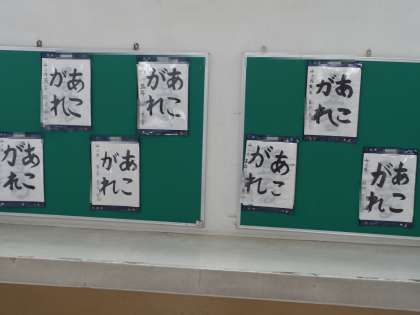 あこ
がれ
あこ
がれ
あこ
がれ
あこ
がれ
あこ
がれ
あこ
がれ
あこ
がれ